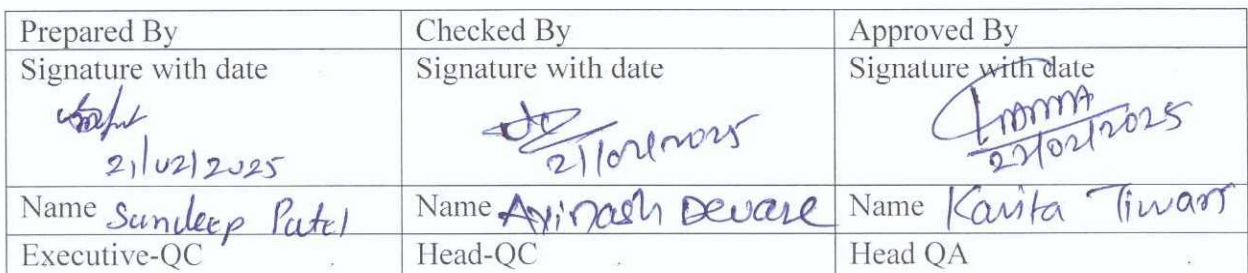 Prepared By Checked By Approved By
Signature with date Signature with date Signature with date
21/02/2025 21/02/2025 22/02/2025
Name Sundeep Patel Name Avinash Devare Name Kavita Tiwari
Executive-QC Head-QC Head QA